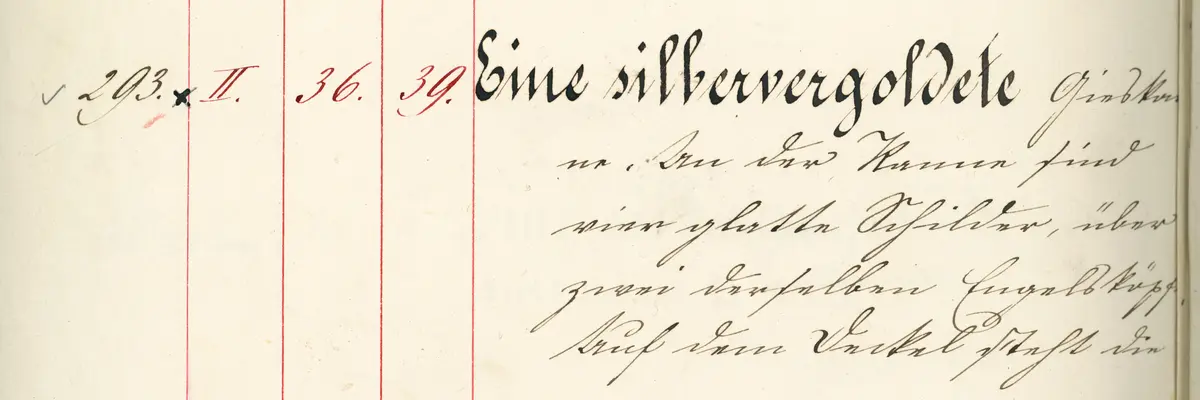 293. x II. 36. 39. Eine silbervergoldete Gieskan
ne. An der Kanne sind
vier glatte Schilder, über
zwei derselben Engelsköpf
Auf dem Deckel steht die